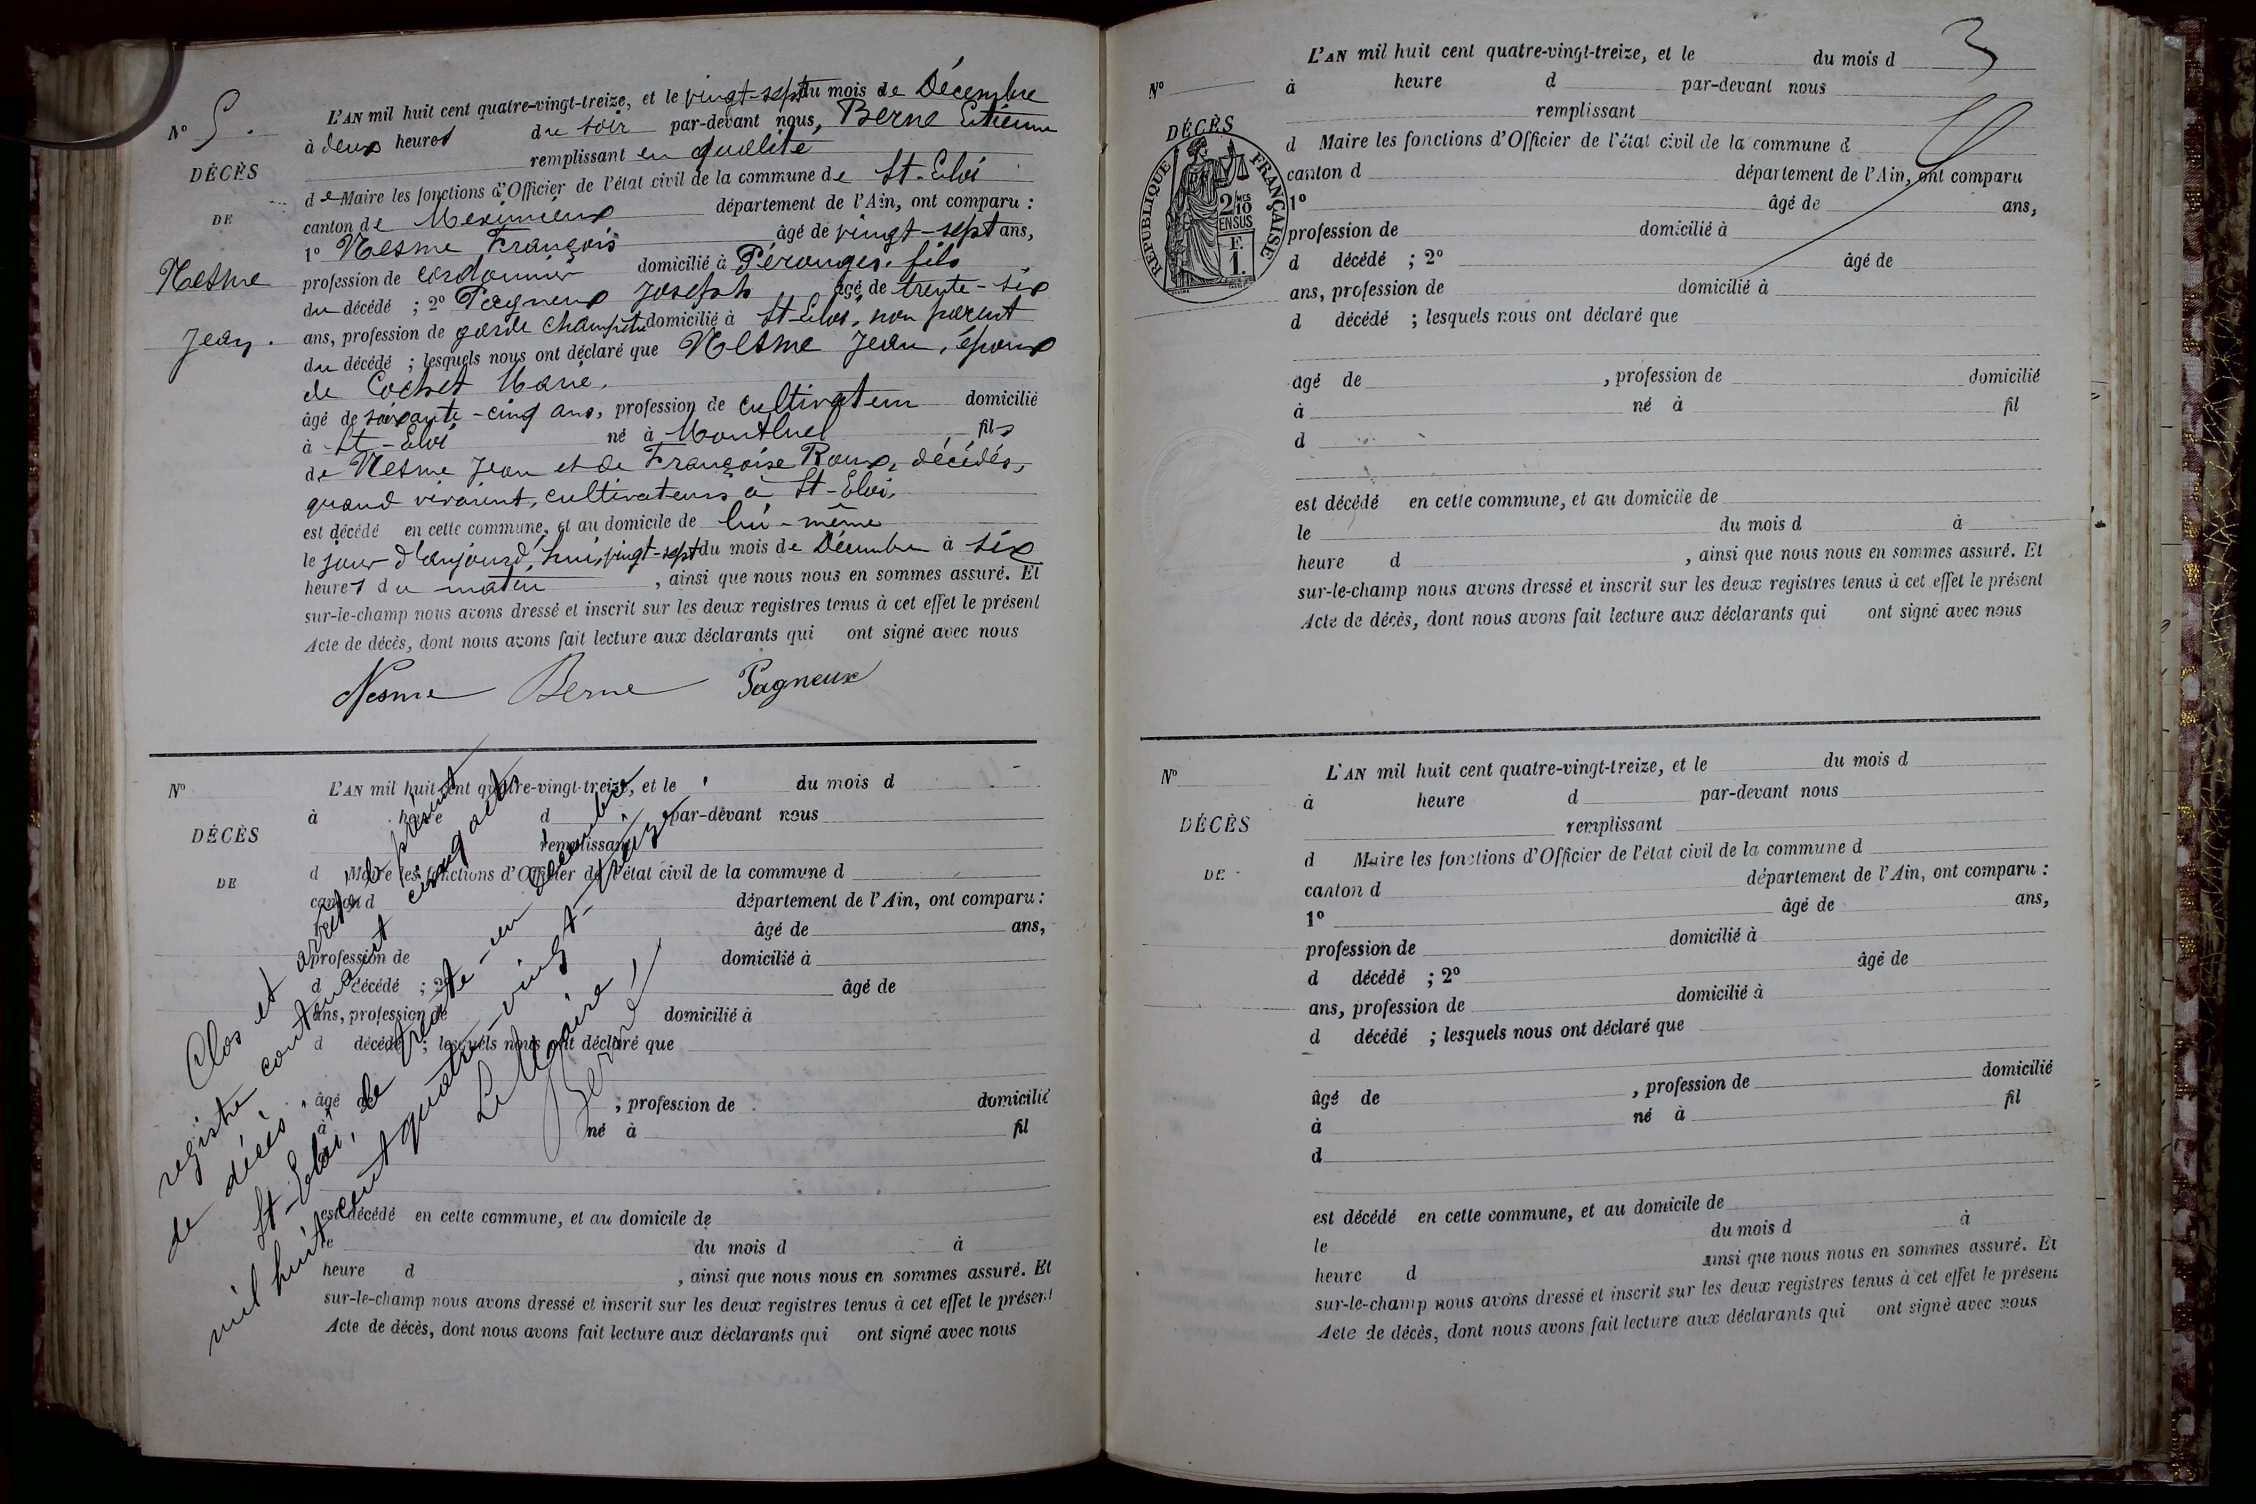 N° 5.
DÉCÈS
DE
Nesme
Jean.
L'AN mil huit cent quatre-vingt-treize, et le vingt-sept du mois de Décembre
à deux heures du soir par-devant nous, Berne Etienne
remplissant en qualité
de Maire les fonctions d'Officier de l'état civil de la commune de St-Eloi
canton de Meximieux département de l'Ain, ont comparu :
1° Nesme François âgé de vingt-sept ans,
profession de cordonnier domicilié à Pérouges, fils
du décédé ; 2° Pagneux Joseph âgé de trente-six
ans, profession de garde champêtre domicilié à St-Eloi, non parent
du décédé ; lesquels nous ont déclaré que Nesme Jean, époux
de Cochet Marie,
âgé de soixante-cinq ans, profession de cultivateur domicilié
à St-Eloi né à Montluel fils
de Nesme Jean et de Françoise Roux, décédés,
quand vivaient, cultivateurs à St-Eloi,
est décédé en cette commune, et au domicile de lui-même
le jour d'aujourd'hui, vingt-sept du mois de Décembre à six
heures du matin , ainsi que nous nous en sommes assuré. Et
sur-le-champ nous avons dressé et inscrit sur les deux registres tenus à cet effet le présent
Acte de décès, dont nous avons fait lecture aux déclarants qui ont signé avec nous
Nesme Berne Pagneux
N°
DÉCÈS
DE
L'AN mil huit cent quatre-vingt-treize, et le du mois d
à heure d par-devant nous
remplissant
d Maire les fonctions d'Officier de l'état civil de la commune d
canton d département de l'Ain, ont comparu :
1° âgé de ans,
profession de domicilié à
d décédé ; 2° âgé de
ans, profession de domicilié à
d décédé ; lesquels nous ont déclaré que
âgé de , profession de domicilié
à né à fil
d
est décédé en cette commune, et au domicile de
le du mois d à
heure d , ainsi que nous nous en sommes assuré. Et
sur-le-champ nous avons dressé et inscrit sur les deux registres tenus à cet effet le présent
Acte de décès, dont nous avons fait lecture aux déclarants qui ont signé avec nous
Clos et arrêté le présent
registre contenant cinq actes
de décès.
St-Eloi, le trente-un décembre
mil huit cent quatre-vingt-treize
Le Maire,
Berne
3
N°
DÉCÈS
RÉPUBLIQUE FRANÇAISE
2/10 MES
EN SUS
F.
1.
L'AN mil huit cent quatre-vingt-treize, et le du mois d
à heure d par-devant nous
remplissant
d Maire les fonctions d'Officier de l'état civil de la commune d
canton d département de l'Ain, ont comparu
1° âgé de ans,
profession de domicilié à
d décédé ; 2° âgé de
ans, profession de domicilié à
d décédé ; lesquels nous ont déclaré que
âgé de , profession de domicilié
à né à fil
d
est décédé en cette commune, et au domicile de
le du mois d à
heure d , ainsi que nous nous en sommes assuré. Et
sur-le-champ nous avons dressé et inscrit sur les deux registres tenus à cet effet le présent
Acte de décès, dont nous avons fait lecture aux déclarants qui ont signé avec nous
N°
DÉCÈS
DE
L'AN mil huit cent quatre-vingt-treize, et le du mois d
à heure d par-devant nous
remplissant
d Maire les fonctions d'Officier de l'état civil de la commune d
canton d département de l'Ain, ont comparu :
1° âgé de ans,
profession de domicilié à
d décédé ; 2° âgé de
ans, profession de domicilié à
d décédé ; lesquels nous ont déclaré que
âgé de , profession de domicilié
à né à fil
d
est décédé en cette commune, et au domicile de
le du mois d à
heure d ainsi que nous nous en sommes assuré. Et
sur-le-champ nous avons dressé et inscrit sur les deux registres tenus à cet effet le présent
Acte de décès, dont nous avons fait lecture aux déclarants qui ont signé avec nous